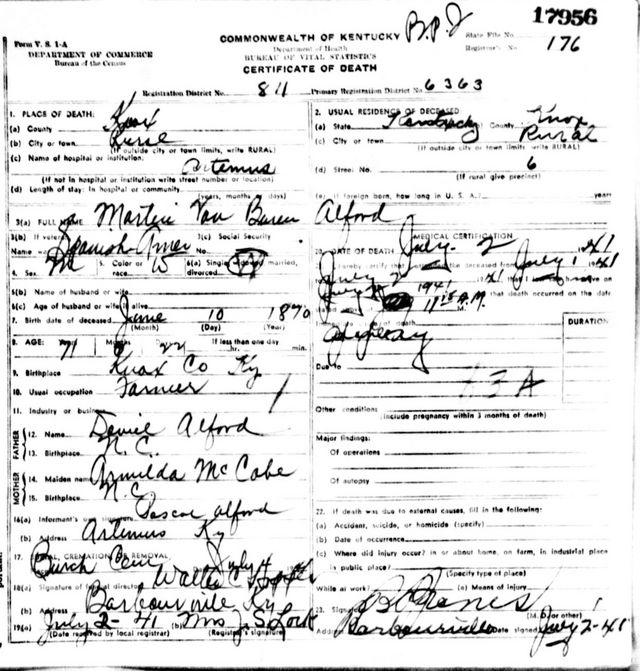 17956
B.P.J
Form V. S. 1-A
DEPARTMENT OF COMMERCE
Bureau of the Census
COMMONWEALTH OF KENTUCKY
Department of Health
BUREAU OF VITAL STATISTICS
CERTIFICATE OF DEATH
State File No.
Registrar's No. 176
Registration District No. 811 Primary Registration District No. 6363
1. PLACE OF DEATH:
(a) County Knox
(b) City or town Rural
(If outside city or town limits, write RURAL)
(c) Name of hospital or institution:
Artemus
(If not in hospital or institution write street number or location)
(d) Length of stay: In hospital or community
(years, months or days)
2. USUAL RESIDENCE OF DECEASED
(a) State Kentucky County Knox
(c) City or town Rural
(If outside city or town limits write RURAL)
(d) Street No. 6
(If rural give precinct)
(e) If foreign born, how long in U. S. A.? years
3(a) FULL NAME Martin Van Buren Alford
3(b) If veteran Spanish Amer 3(c) Social Security
Name No.
4. Sex M 5. Color or race W 6(a) Single, married,
divorced W
6(b) Name of husband or wife
6(c) Age of husband or wife if alive
7. Birth date of deceased June 10 1870
(Month) (Day) (Year)
8. AGE: 71 0 22 If less than one day
hr. min.
9. Birthplace Knox Co Ky
10. Usual occupation Farmer
11. Industry or business
FATHER
12. Name Alford
13. Birthplace N.C.
MOTHER
14. Maiden name Armilda McCabe
15. Birthplace N.C
16(a) Informant's own signature Pascoe Alford
(b) Address Artemus Ky
17. BURIAL, CREMATION OR REMOVAL,
Burch Cem July 4
18(a) Signature of funeral director Walter
(b) Address Barbourville Ky
19(a) July 2-41 Mrs J. S. Lock
(Date received by local registrar) (Registrar's signature)
MEDICAL CERTIFICATION
20. DATE OF DEATH July 2 1941
I hereby certify that I attended the deceased from July 1 1941
July 2 1941
that death occurred on the date
11 15 A.M.
Immediate cause of death DURATION
Due to
Other conditions
(include pregnancy within 3 months of death)
Major findings:
Of operations
Of autopsy
22. If death was due to external causes, fill in the following:
(a) Accident, suicide, or homicide (specify)
(b) Date of occurrence
(c) Where did injury occur? in or about home, on farm, in industrial place
in public place?
(Specify type of place)
While at work? (e) Means of injury
23. Signature
(M.D. or other)
Address Barbourville Date signed July 2-41